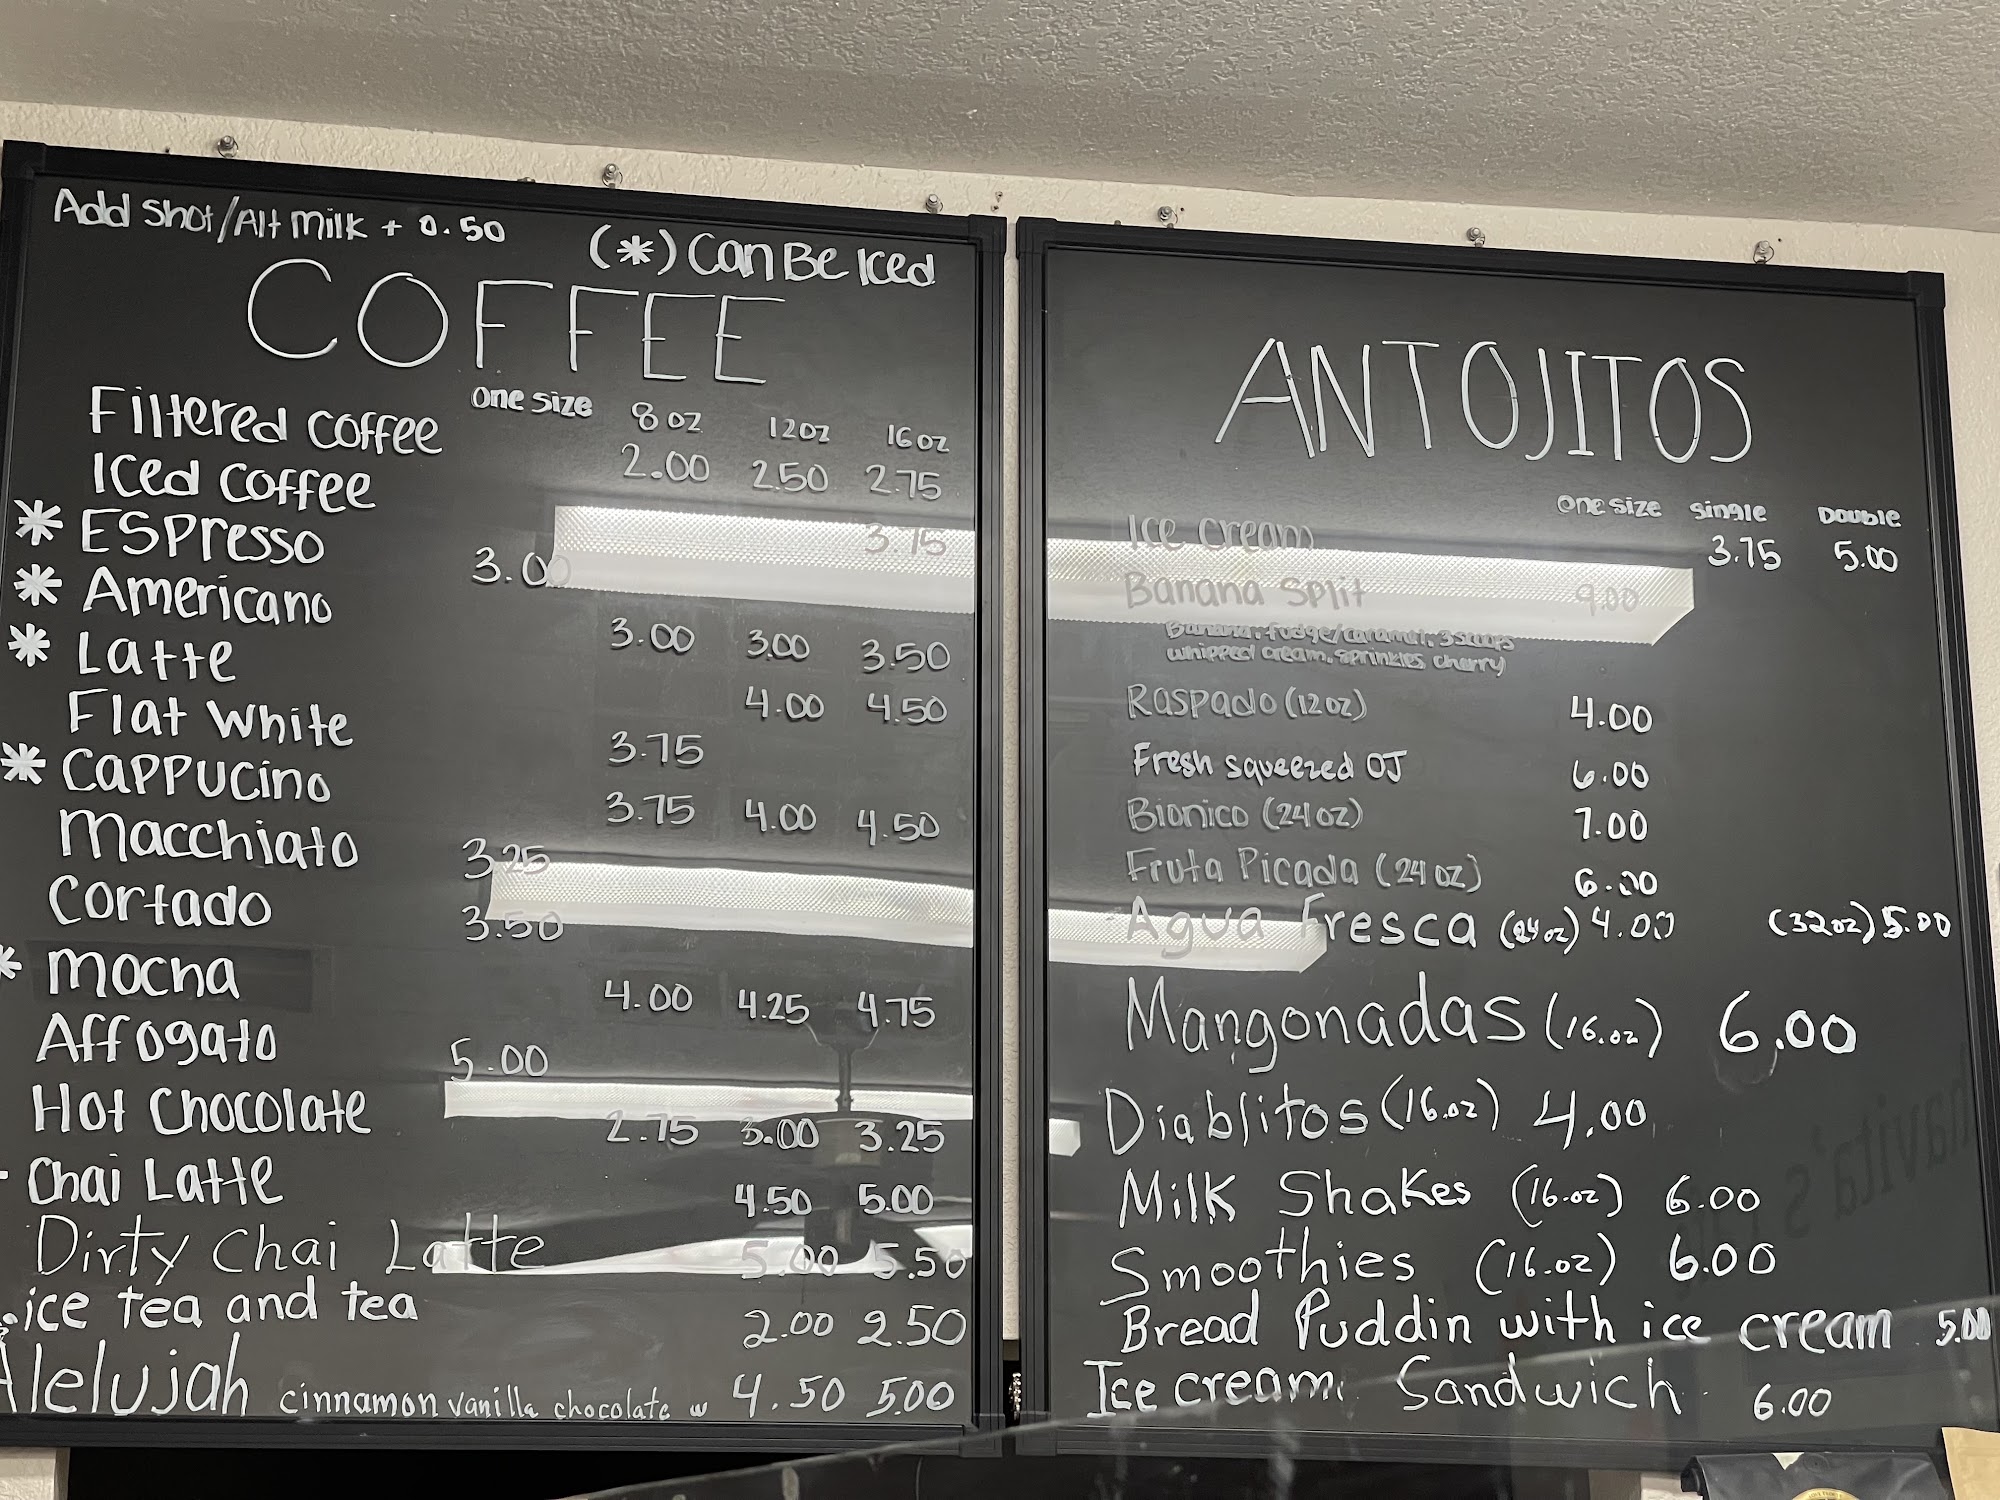 Add Shot/Alt milk + 0.50
(*) Can Be Iced
COFFEE
one size 8 oz 12oz 16oz
Filtered Coffee 2.00 2.50 2.75
Iced Coffee 3.75
* Espresso 3.00
* Americano 3.00 3.00 3.50
* Latte 4.00 4.50
Flat White 3.75
* Cappucino 3.75 4.00 4.50
Macchiato 3.25
Cortado 3.50
* Mocha 4.00 4.25 4.75
Affogato 5.00
Hot Chocolate 2.75 3.00 3.25
Chai Latte 4.50 5.00
Dirty Chai Latte 5.00 5.50
ice tea and tea 2.00 2.50
Alelujah cinnamon vanilla chocolate w 4.50 5.00
ANTOJITOS
one size single Double
Ice cream 3.75 5.00
Banana Split 9.00
Banana, fudge/caramel, 3 scoops
whipped cream, sprinkles cherry
Raspado (12oz) 4.00
Fresh squeezed OJ 6.00
Bionico (24oz) 7.00
Fruta Picada (24oz) 6.00
Agua Fresca (24oz) 4.00 (32oz) 5.00
Mangonadas (16.oz) 6.00
Diablitos (16.oz) 4.00
Milk Shakes (16.oz) 6.00
Smoothies (16.oz) 6.00
Bread Puddin with ice cream 5.00
Ice cream Sandwich 6.00